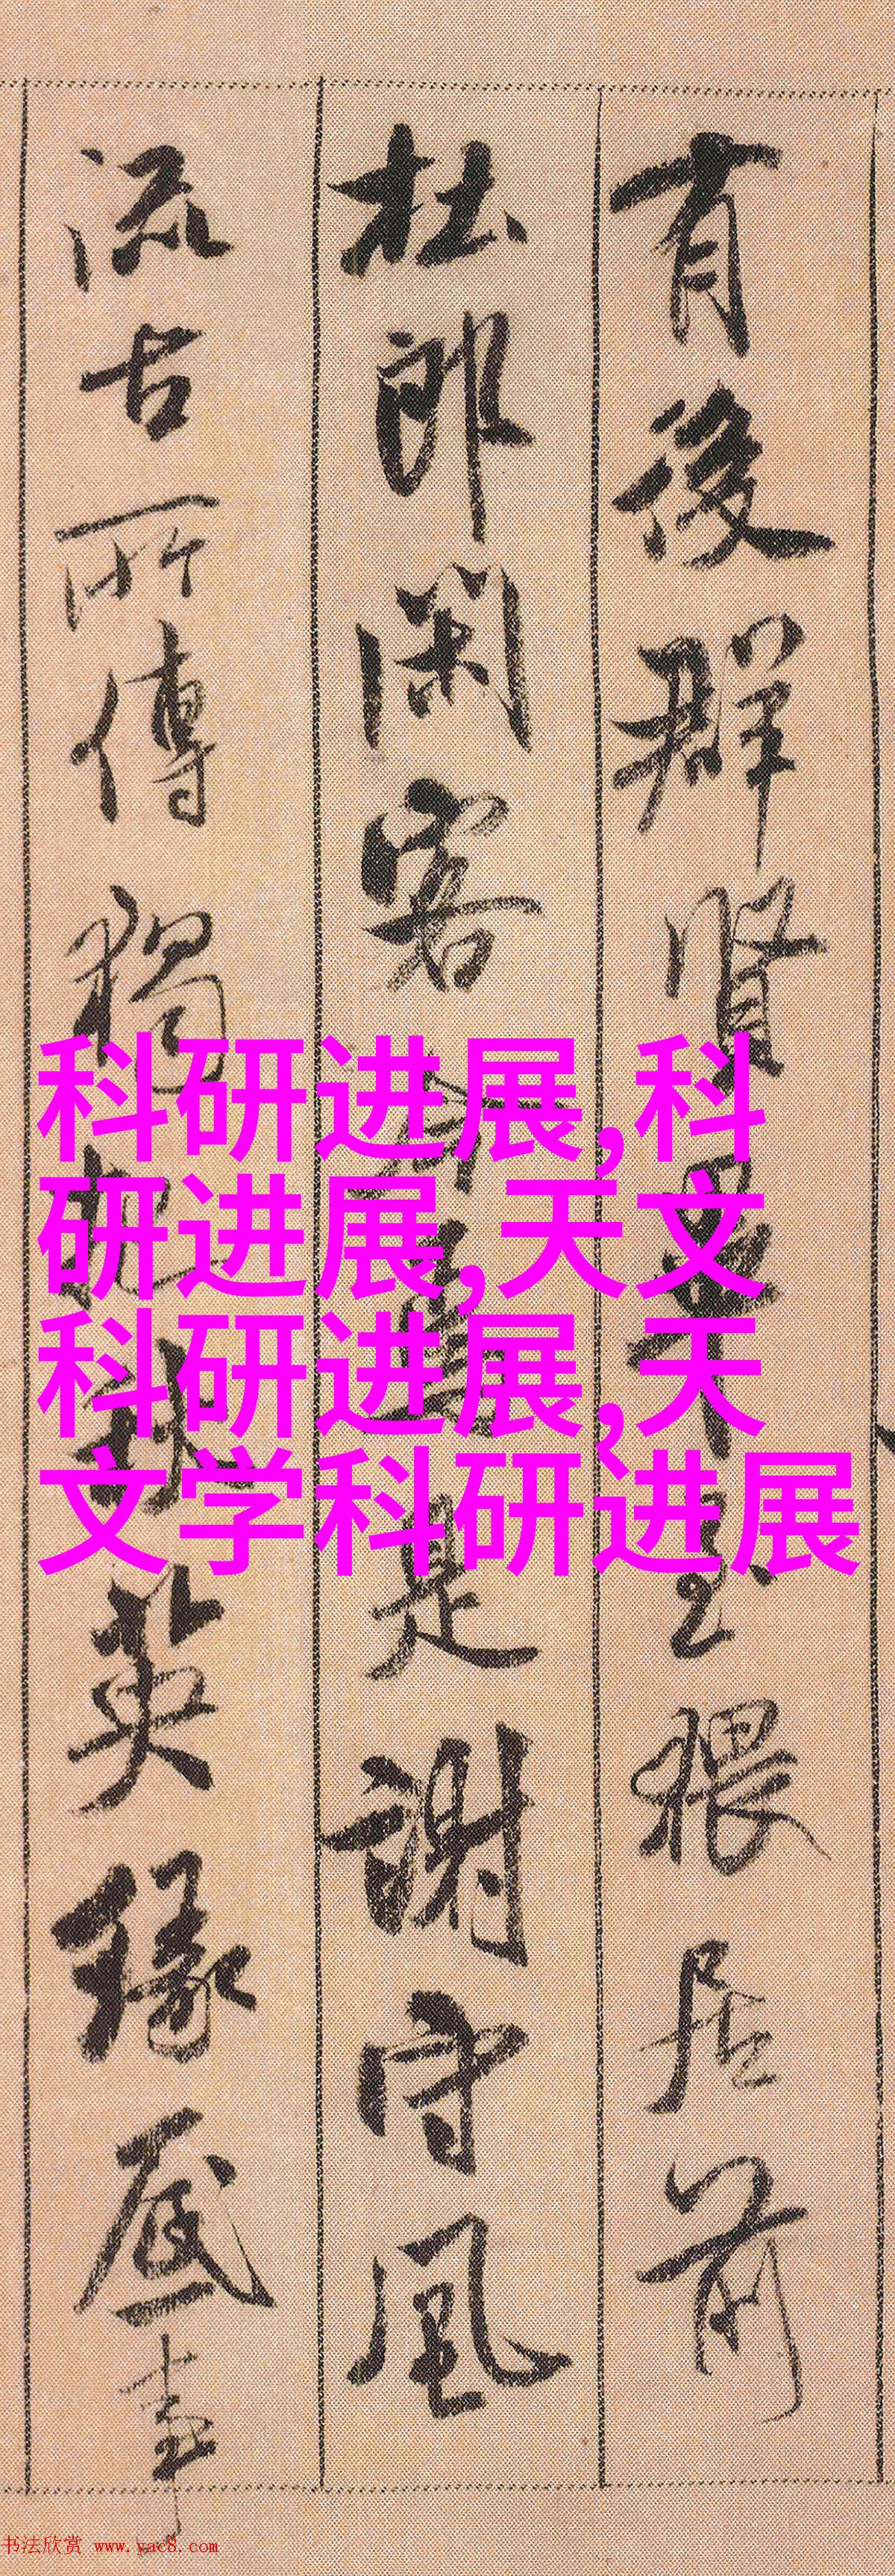 有後群賢畢至猥居前
杜郎閑客今焉是謝守風
流古所傳獨把秋英緣底事
科研进展,科
研进展,天文
科研进展,天
文学科研进展
书法欣赏 www.yac8.com